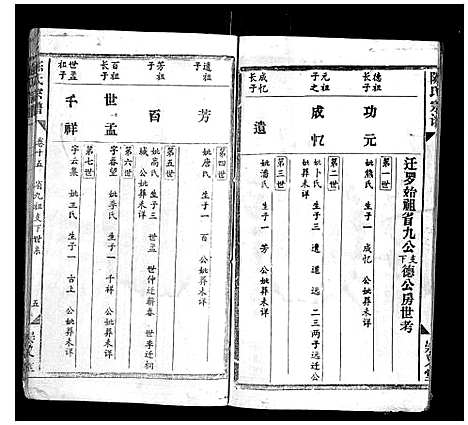 陈氏宗谱
迁罗始祖省九公支下德公房世考
德祖长子
功元
第一世
妣熊氏 生子一 成忆 公妣葬未详
元祖之子
成忆
第二世
妣卜氏 生子三 遗 遠 远 二三两子远迁公妣葬未详
成忆长子
遗
第三世
妣潘氏 生子一 芳 公妣葬未详
遗祖子
芳
第四世
妣唐氏 生子一 百 公妣葬未详
芳祖子
百
第五世
妣高氏 生子三 世孟 世仲迁蕲春 世季迁祠城 公妣葬未详
百祖长子
世孟
第六世
字春望 妣李氏 生子一 千祥 公妣葬未详
世孟祖子
千祥
第七世
字云衆 妣王氏 生子一 古上 公妣葬未详
陈氏宗谱
卷十五 省九祖支下世系
五